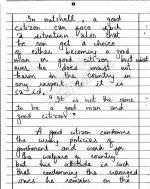 In nutshell, a good
citizen can face such
a situation also that
he can get a choice
of either becoming a good
man or good citizen but what
ever he does must not
harm to the country in
any respect. As it is
said,
"It is not the same
to be a good man and
good citizen".
A good citizen condemns
the wrong policies of
government and work for
the welfare of country
but his attitude is such
that condemning the wrongs
ones he remains on the